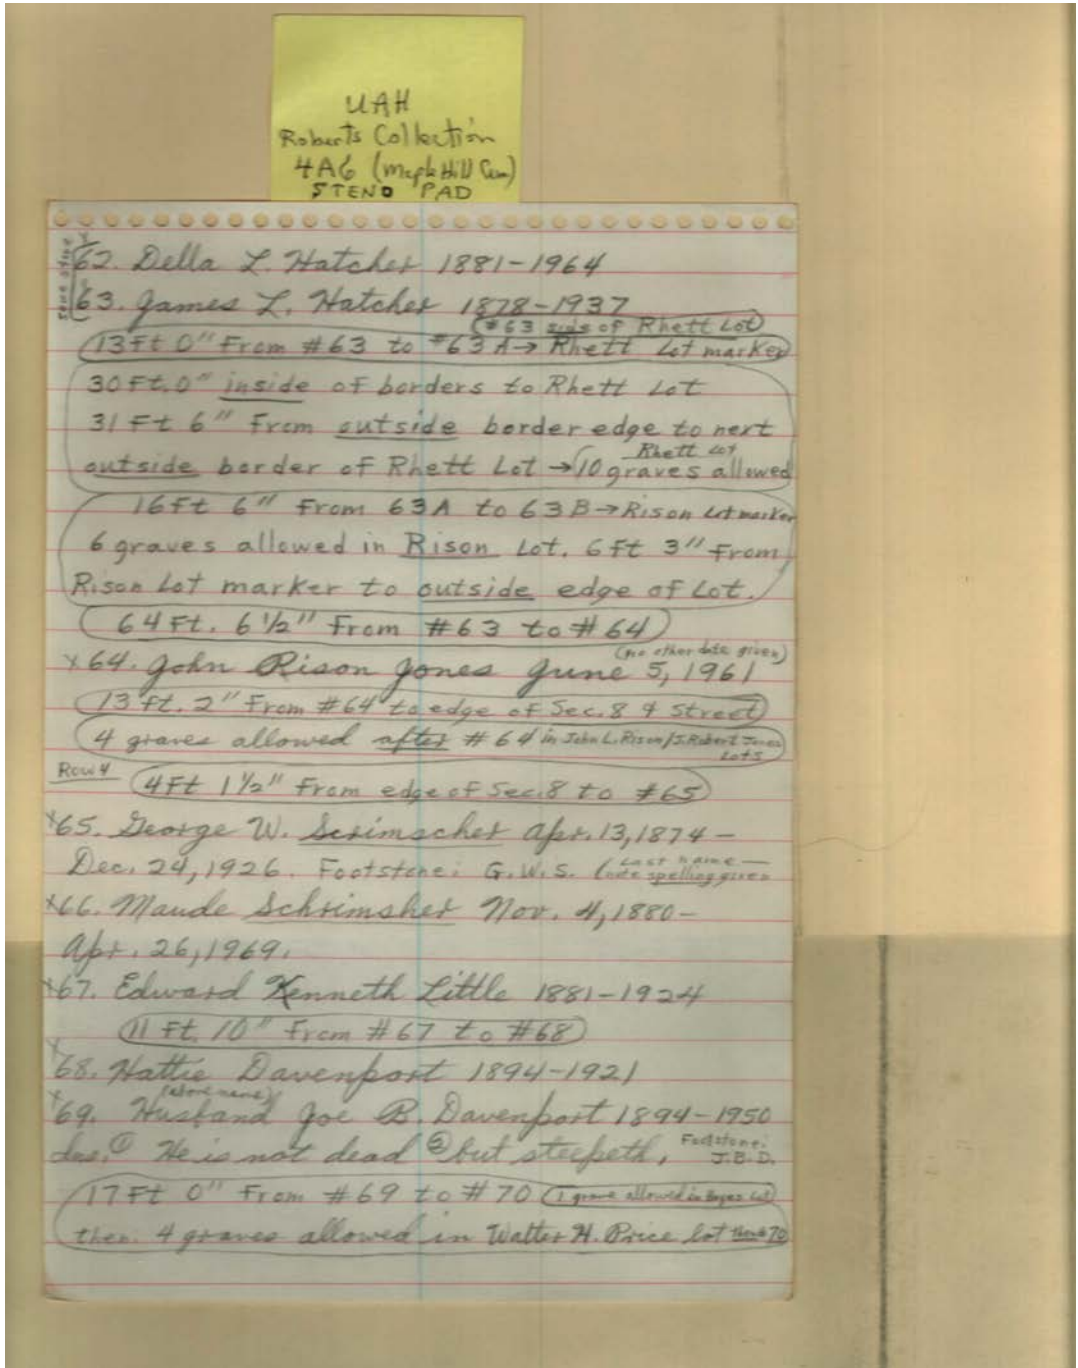 UAH
Roberts Collection
4A6 (Maple Hill Cem)
STENO PAD
same stone
x62. Della L. Hatcher 1881-1964
63. James L. Hatcher 1878-1937
(#63 side of Rhett Lot)
13 Ft 0" From #63 to #63A→ Rhett Lot marker
30 Ft. 0" inside of borders to Rhett Lot
31 Ft 6" From outside border edge to next
Rhett Lot
outside border of Rhett Lot → 10 graves allowed
16 Ft 6" From 63A to 63B→ Rison Lot marker
6 graves allowed in Rison Lot. 6 ft 3" From
Rison Lot marker to outside edge of Lot.
64 Ft. 6 1/2" From #63 to #64
(no other date given)
x64. John Rison Jones June 5, 1961
13 ft. 2" From #64 to edge of Sec. 8 & Street
4 graves allowed after #64 in John L. Rison/J. Robert Jones
Lots
Row 4
4 Ft 1 1/2" From edge of Sec. 8 to #65
x65. George W. Scrimscher Apr. 13, 1874 –
Dec. 24, 1926. Footstone: G.W.S. (Last name —
note spelling given
x66. Maude Schrimsher Nov. 4, 1880 –
Apr. 26, 1969.
x67. Edward Kenneth Little 1881-1924
11 Ft. 10" From #67 to #68
x68. Hattie Davenport 1894-1921
(above name)
x69. Husband Joe B. Davenport 1894-1950
Ins. ① He is not dead ② but sleepeth, Footstone:
J.B.D.
17 Ft 0" From #69 to #70 (1 grave allowed in Lot)
then: 4 graves allowed in Walter H. Price lot then #70